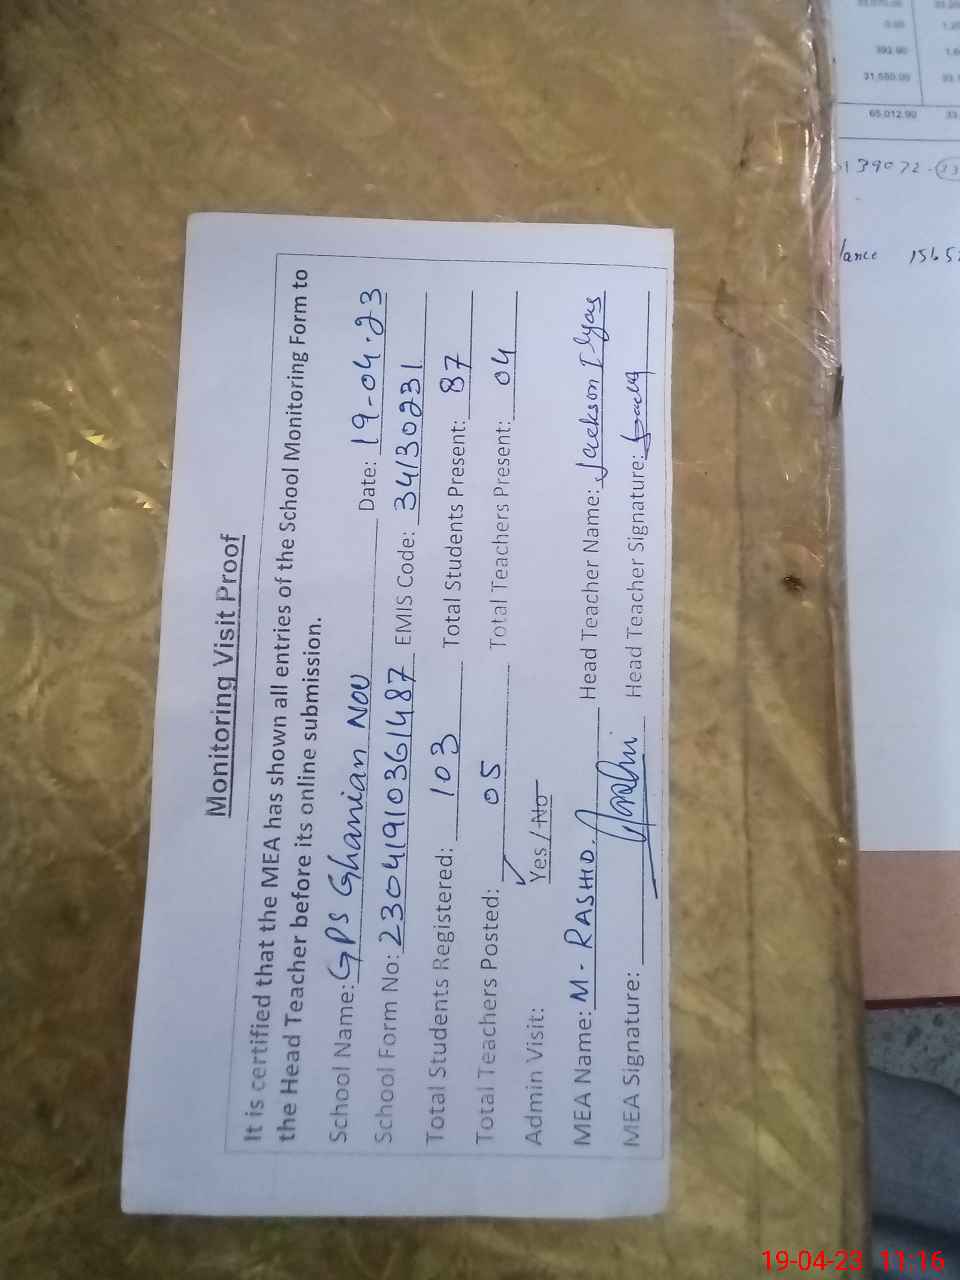 Monitoring Visit Proof
It is certified that the MEA has shown all entries of the School Monitoring Form to
the Head Teacher before its online submission.
School Name: GPS Ghanian Nou Date: 19-04-23
School Form No: 23041910361487 EMIS Code: 34130231
Total Students Registered: 103 Total Students Present: 87
Total Teachers Posted: 05 Total Teachers Present: 04
Admin Visit: Yes / No
MEA Name: M. RASHID. Head Teacher Name: Jackson Ilyas
MEA Signature: Head Teacher Signature:
0.00
392.90
31,550.00
65,012.90
19-04-23 11:16